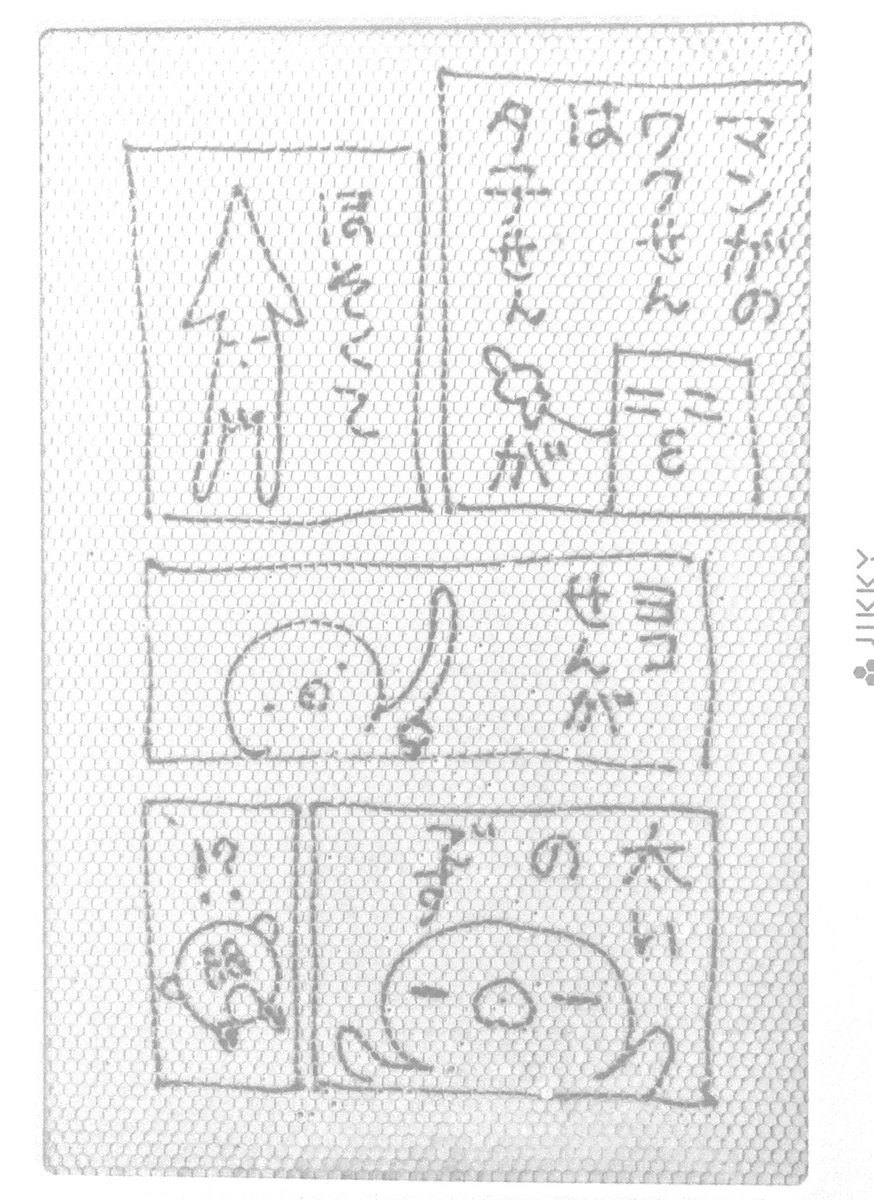 マンガの
ワクせん
は
タテせん
が
ほそくて
ヨコ
せんが
太い
の
!?
JIKKY